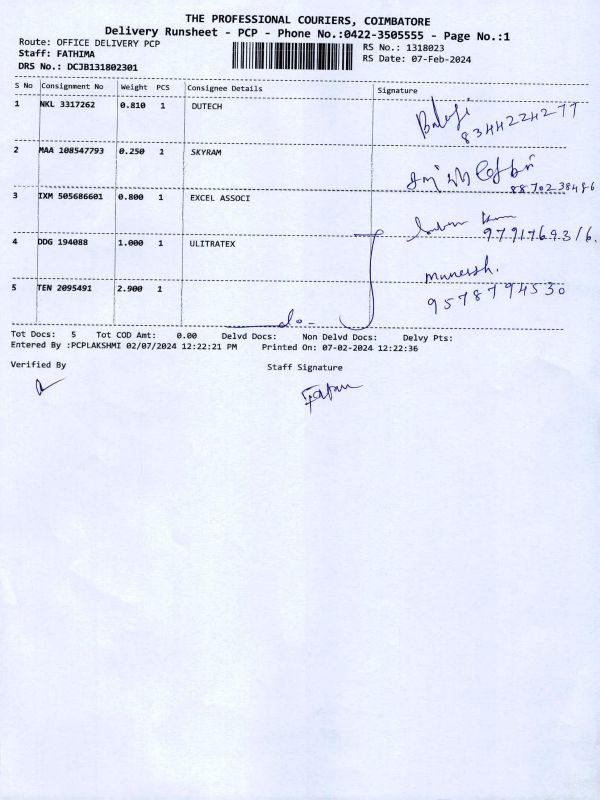 THE PROFESSIONAL COURIERS, COIMBATORE
Delivery Runsheet - PCP - Phone No.:0422-3505555 - Page No.:1
Route: OFFICE DELIVERY PCP
Staff: FATHIMA
DRS No.: DCJB131802301
RS No.: 1318023
RS Date: 07-Feb-2024
S No Consignment No Weight PCS Consignee Details Signature
1 NKL 3317262 0.810 1 DUTECH
Balaji
8344224277
2 MAA 108547793 0.250 1 SKYRAM
8870238486
3 IXM 505686601 0.800 1 EXCEL ASSOCI
9791769316.
4 DDG 194088 1.000 1 ULITRATEX
Muneesh.
9578794530
5 TEN 2095491 2.900 1
do-
Tot Docs: 5 Tot COD Amt: 0.00 Delvd Docs: Non Delvd Docs: Delvy Pts:
Entered By :PCPLAKSHMI 02/07/2024 12:22:21 PM Printed On: 07-02-2024 12:22:36
Verified By
Staff Signature